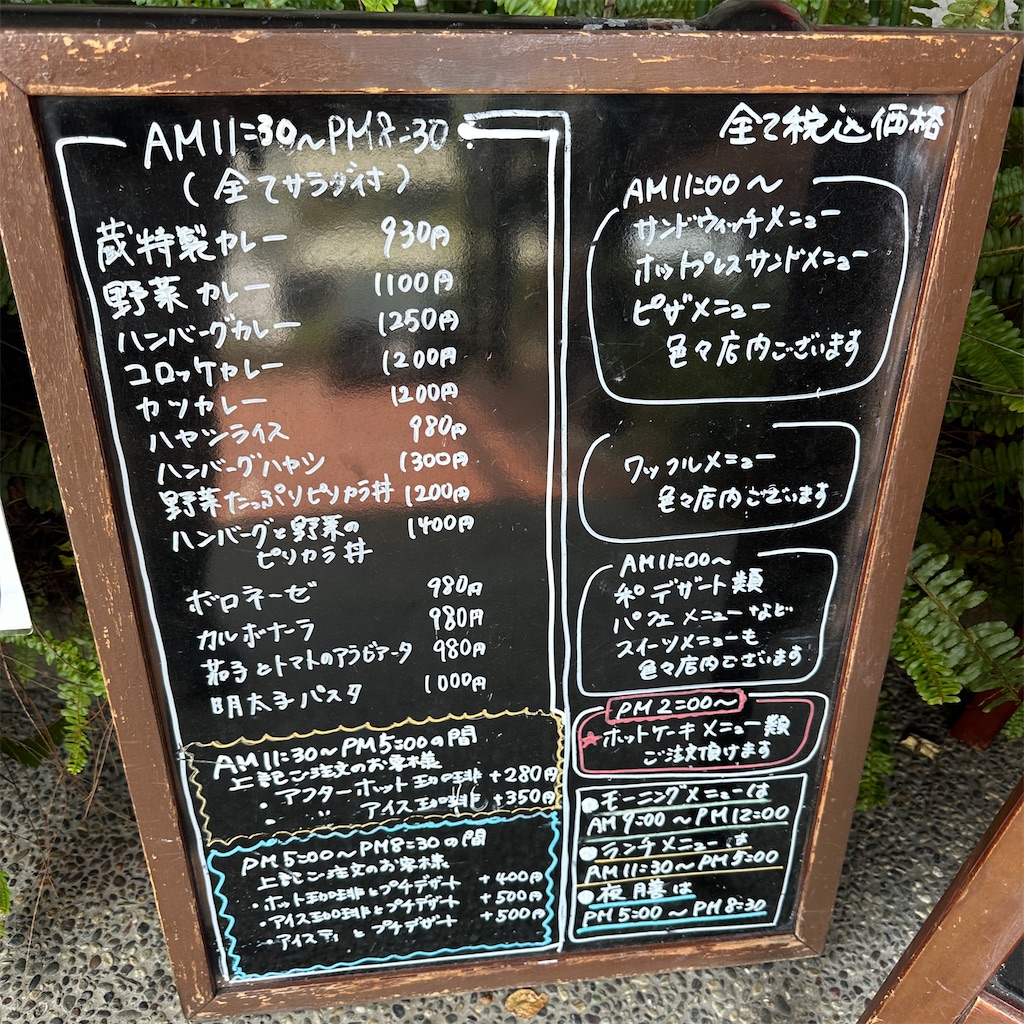 AM11:30〜PM8:30
(全てサラダ付)
蔵特製カレー 930円
野菜カレー 1100円
ハンバーグカレー 1250円
コロッケカレー 1200円
カツカレー 1200円
ハヤシライス 980円
ハンバーグハヤシ 1300円
野菜たっぷりピリカラ丼 1200円
ハンバーグと野菜の 1400円
ピリカラ丼
ボロネーゼ 980円
カルボナーラ 980円
茄子とトマトのアラビアータ 980円
明太子パスタ 1000円
AM11:30〜PM5:00の間
上記ご注文のお客様
・アフターホット珈琲 +280円
・〃 アイス珈琲 +350円
PM5:00〜PM8:30の間
上記ご注文のお客様
・ホット珈琲とプチデザート +400円
・アイス珈琲とプチデザート +500円
・アイスティとプチデザート +500円
全て税込価格
AM11:00〜
サンドウィッチメニュー
ホットプレスサンドメニュー
ピザメニュー
色々店内ございます
ワッフルメニュー
色々店内ございます
AM11:00〜
和デザート類
パフェメニューなど
スイーツメニューも
色々店内ございます
PM2:00〜
★ホットケーキメニュー類
ご注文頂けます
●モーニングメニューは
AM9:00〜PM12:00
●ランチメニューは
AM11:30〜PM5:00
●夜膳は
PM5:00〜PM8:30